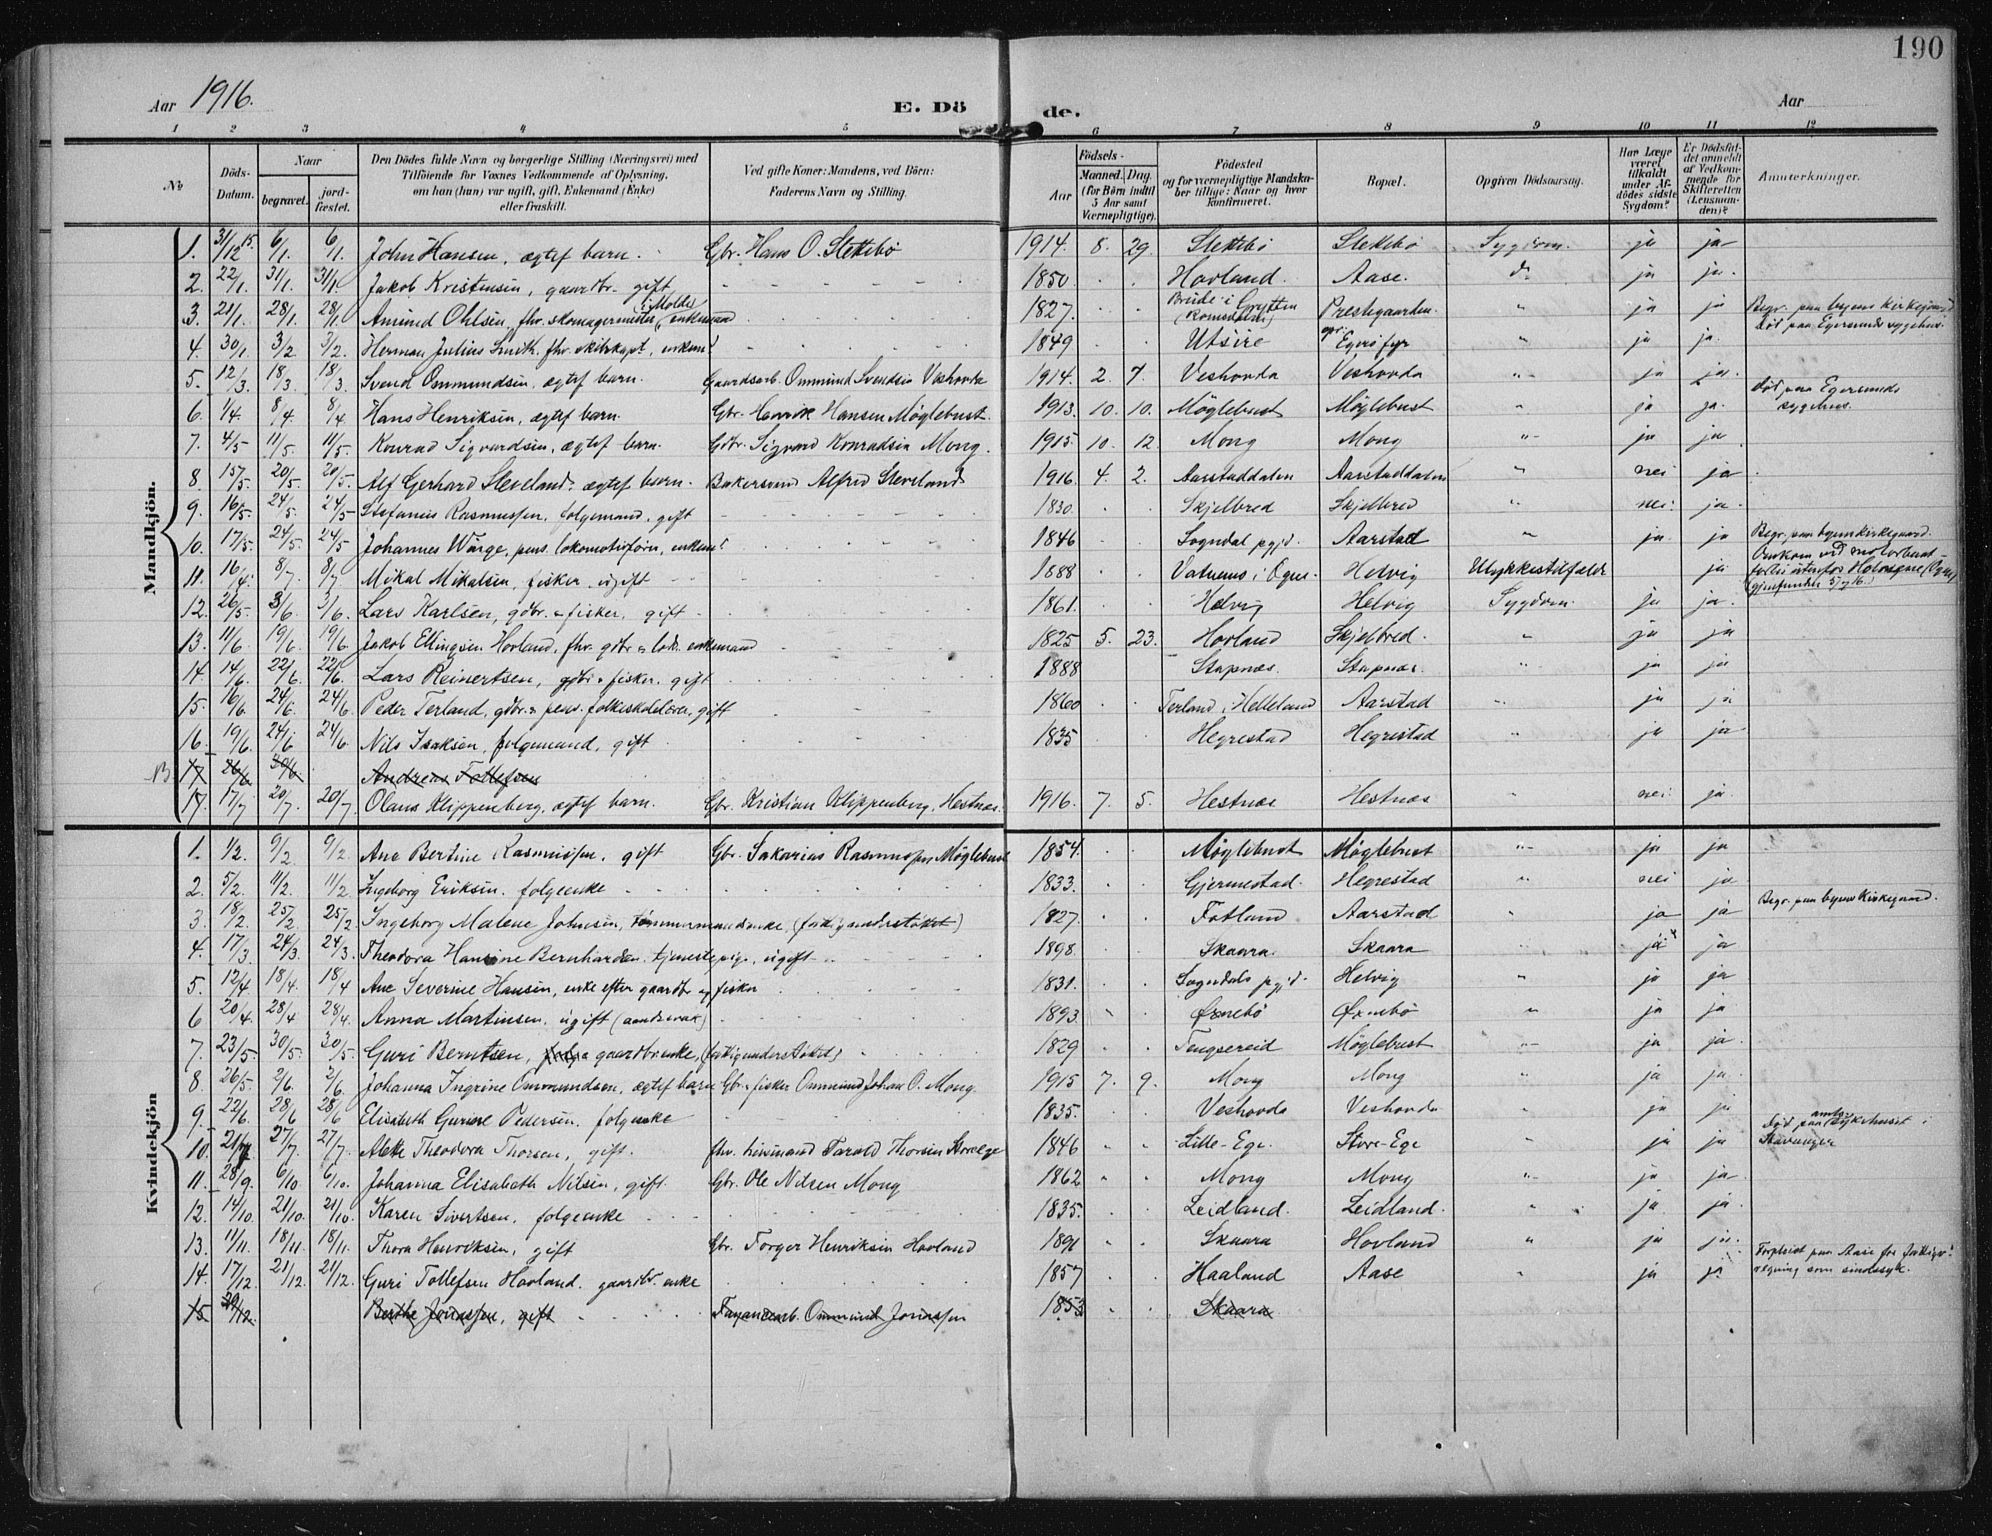 190
Aar 1916. E. Dö de. Aar
1 2 3 4 5 6 7 8 9 10 11 12
No
Döds-Datum.
Naar begravet. jord-fæstet.
Den Dödes fulde Navn og borgerlige Stilling (Næringsvei) med
Tilföiende for Voxnes Vedkommende af Oplysning,
om han (hun) var ugift, gift, Enkemand (Enke)
eller fraskilt.
Ved gifte Koner: Mandens, ved Börn:
Faderens Navn og Stilling.
Födsels-
Aar Maaned. Dag.
(for Börn indtil
5 Aar samt
Værnepligtige).
Födested
og for værnepligtige Mandskaber tillige: Naar og hvor konfirmeret.
Bopæl.
Opgiven Dödsaarsag.
Har Læge været tilkaldt under Afdödes sidste Sygdom?
Er Dödsfaldet anmeldt af Vedkommende for Skifteretten (Lensmanden)?
Anmærkninger.
Mandkjön.
1. 31/12 15. 6/1. 6/1. John Hansen, ægtef barn. Gbr. Hans O. Slettebö 1914. 8. 29. Slettebö Slettebö Sygdom. ja ja
2. 22/1. 31/1. 31/1. Jakob Kristensen, gaardbr. gift 1850 Hovland. Aase. do ja ja.
3. 21/1. 28/1. 28/1. Amund Ohlsen, fhv. skomagermester (i Molde), enkemand 1827. i Grytten (Romsdalen) Prestegaarden. " ja ja Begr. paa byens kirkegaard Död paa Egersunds sygehus.
4. 30/1. 3/2. 3/2. Herman Julius Smith. fhv. skibskapt., enkem. 1849 Utsire Egerö fyr " ja ja.
5. 12/3. 18/3. 18/3. Svend Ommundsen, ægtef barn. Gaardsarb. Ommund Svendsen Veshovda 1914. 2. 7. Veshovda Veshovda " ja ja.
6. 1/4. 8/4. 8/4. Hans Henriksen, ægtef barn. Gbr. Henrik Hansen Möglebust. 1913. 10. 10. Möglebust Möglebust " ja ja. Död paa Egersunds sygehus.
7. 4/5. 11/5. 11/5. Konrad Sigvardsen, ægtef barn. Gdbr. Sigvard Konradsen Mong. 1915. 10. 12. Mong Mong " ja ja
8. 15/5. 20/5. 20/5. Alf Gerhard Steveland. ægtef barn. Bakersvend Alfred Steveland 1916. 4. 2. Aarstaddalen Aarstaddalen " nei ja
9. 16/5. 24/5. 24/5 Stefanus Rasmussen, folgemand, gift 1830. Skjelbred Skjelbred " nei ja.
10. 17/5. 24/5. 24/5 Johannes Warge, pens. lokomotivförer, enkem. 1846 Sogndal pgjd. Aarstad " ja ja Begr. paa byens kirkegaard.
11. 16/4. 8/7. 8/7. Mikal Mikalsen, fisker, ugift 1888 Vatnemo i Ogne. Helvig Ulykkestilfælde ja Omkom ved motorbaad- forlis utenfor (Ogne) (gjenfunden 5/7 16.)
12. 26/5. 3/6. 3/6. Lars Karlsen, gdbr. & fisker, gift 1861. Helvig Helvig Sygdom. ja ja.
13. 11/6 19/6 19/6. Jakob Ellingsen Hovland, fhv. gdbr & enkemand 1825 5. 23. Hovland Skjelbred. " ja ja
14. 14/6. 22/6. 22/6. Lars Reinertsen, gdbr & fisker, gift 1888 Stapnæs. Stapnæs. " ja ja
15. 16/6. 24/6. 24/6. Peder Terland, gdbr & pens. folkeskolelærer, gift 1860 Terland i Helleland Aarstad ja ja
16. 19/6. 24/6 24/6. Nils Isaksen, folgemand, gift 1835 Hegrestad Hegrestad " ja ja
B. 17 26/6 30/6. Andreas Tollefsen
17. 17/7 20/7. 20/7. Olaus Klippenberg, ægtef barn. Gbr. Kristian Klippenberg, Hestnæs. 1916. 7. 5. Hestnæs Hestnæs " nei ja.
Kvindekjön
1. 1/2. 9/2 9/2. Ane Bertine Rasmussen, gift Gbr. Sakarias Rasmussen Möglebust 1854. Möglebust Möglebust " ja ja
2. 5/2. 11/2. 11/2 Ingeborg Eriksen. folgeenke 1833. Gjermestad. Hegrestad " nei ja
3. 18/2. 25/2 25/2. Ingeborg Malene Johnsen, tömmermandsenke, (fattigunderstöttet) 1827. Fotland Aarstad " ja ja Begr. paa byens kirkegaard.
4. 17/3. 24/3. 24/3. Theodora Hansine Bernhardsen, tjenestepige, ugift 1898. Skaara. Skaara " ja ja
5. 12/4 18/4. 18/4 Ane Severine Hansen, enke efter gaardbr og fisker 1831. Sogndals pgjd. Helvig " ja ja
6 20/4. 28/4 28/4. Anna Martinsen, ugift (aandssvak) 1893 Øxnebö Øxnebö " ja ja
7. 23/5. 30/5. 30/5. Guri Berntsen, gaardbr.enke, (fattigunderstöttet) 1829 Tengsereid Möglebust " ja ja.
8. 26/5 2/6. 2/6. Johanna Ingrine Ommundsen, ægtef barn Gbr. & fisker Ommund Johan O. Mong. 1915 7. 9. Mong Mong " ja ja.
9. 22/6. 28/6 28/6 Elisabeth Gurine Pedersen. folgeenke 1835. Veshovda Veshovda " ja ja
10. 21/7 27/7. 27/7. Alette Theodora Thorsen, gift. fhv. Tarald Thorsen Storeege 1846 Lille-Ege. Store-Ege " ja ja Död paa amts-sykehuset i Stavanger
11. 28/9. 6/10 6/10. Johanna Elisabeth Nilsen, gift. Gbr. Ole Nilsen Mong 1862 Mong Mong " ja ja
12. 14/10. 21/10. 21/10. Karen Sivertsen, folgeenke 1835. Leidland. Leidland. " ja ja.
13. 11/11. 18/11. 18/11. Thora Henriksen, gift Gbr. Torger Henriksen Hovland 1891 Skaara Hovland " ja ja.
14. 17/12. 21/12. 21/12. Guri Tollefsen Hovland. gaardbr. enke 1857 Haaland Aase " ja ja Forpleiet paa Aase for fattigv. regning som sindssyk.
15 30/12. Berthe Jonassen, gift Fayancearb. Ommund Jonassen 1853 Skaara